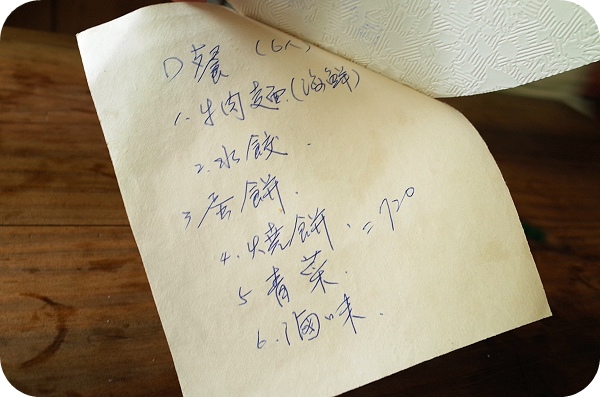 D餐 (6人)
1. 牛肉麵(海鮮)
2. 水餃.
3 蛋餅.
4. 燒餅. = 720
5 青菜.
6. 滷味.